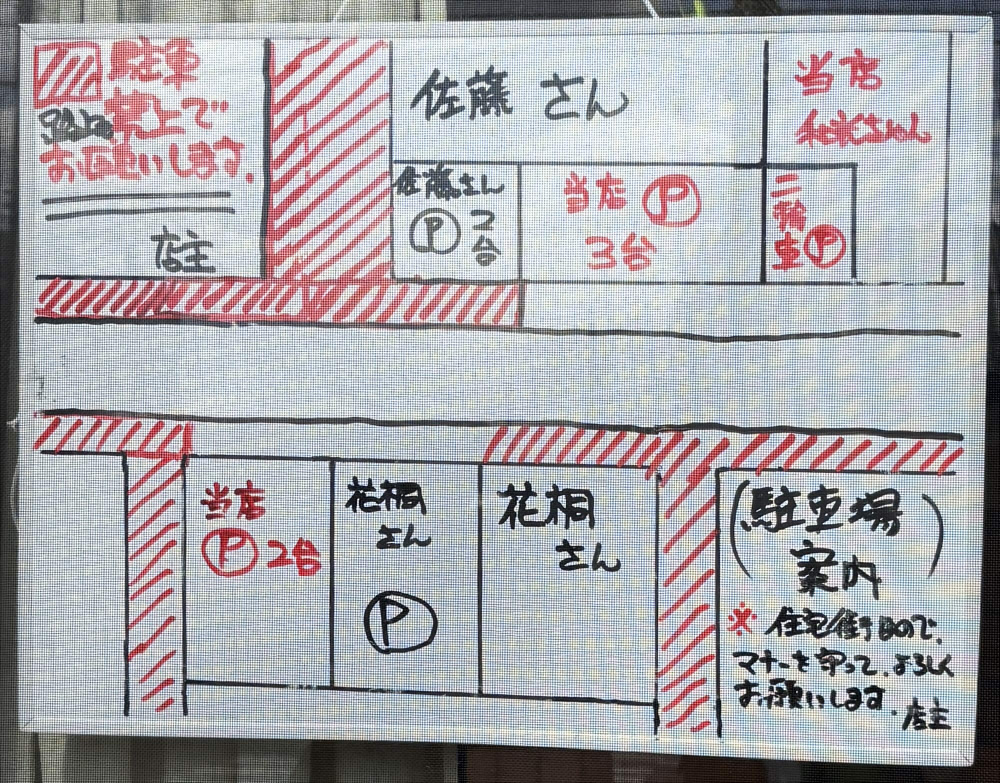 駐車
禁止で
お願いします。
店主
佐藤 さん
当店
佐藤さん
Ⓟ 2台
当店 Ⓟ
3台
二輪車Ⓟ
当店
Ⓟ 2台
花桐
さん
Ⓟ
花桐
さん
(駐車場
案内)
※ 住宅街なので、
マナーを守って、よろしく
お願いします。店主